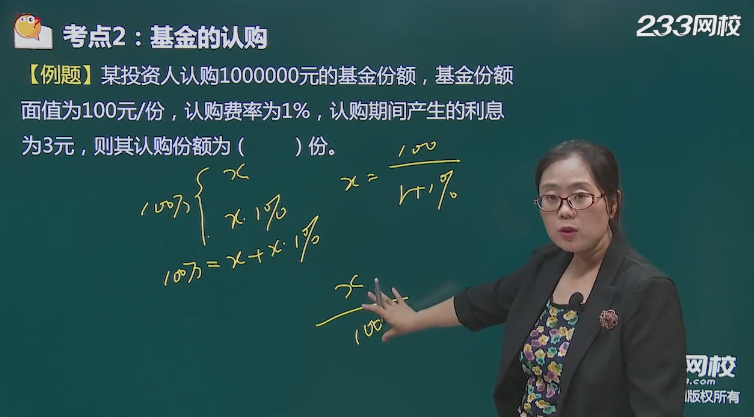 考点2：基金的认购
233网校
【例题】某投资人认购1000000元的基金份额，基金份额
面值为100元/份，认购费率为1%，认购期间产生的利息
为3元，则其认购份额为（　　）份。
100万{
x
x·1%
100万=x+x·1%
x=100/1+1%
x/100
网校
.com
版权所有